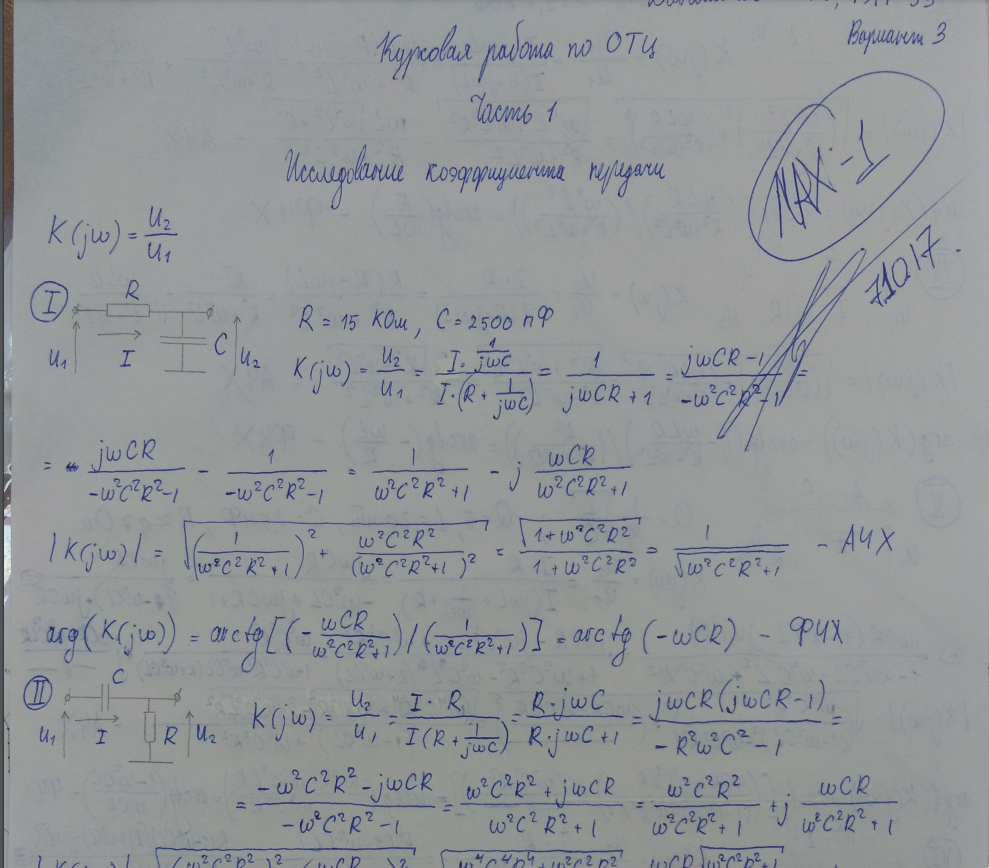 Вариант 3
Курсовая работа по ОТЦ
Часть 1
Исследование коэффициента передачи
K(jω) = U₂/U₁
I R C U₁ I U₂
R = 15 КОм, C = 2500 пФ
K(jω) = U₂/U₁ = (I · 1/(jωC))/(I·(R + 1/(jωC))) = 1/(jωCR + 1) = (jωCR - 1)/(-ω²C²R² - 1) =
= jωCR/(-ω²C²R² - 1) - 1/(-ω²C²R² - 1) = 1/(ω²C²R² + 1) - j ωCR/(ω²C²R² + 1)
|K(jω)| = √((1/(ω²C²R² + 1))² + ω²C²R²/(ω²C²R² + 1)²) = √(1 + ω²C²R²)/(1 + ω²C²R²) = 1/√(ω²C²R² + 1) - АЧХ
arg(K(jω)) = arctg[(-ωCR/(ω²C²R² + 1))/(1/(ω²C²R² + 1))] = arctg(-ωCR) - ФЧХ
II C U₁ I R U₂
K(jω) = U₂/U₁ = (I · R)/(I(R + 1/(jωC))) = (R·jωC)/(R·jωC + 1) = (jωCR(jωCR - 1))/(-R²ω²C² - 1) =
= (-ω²C²R² - jωCR)/(-ω²C²R² - 1) = (ω²C²R² + jωCR)/(ω²C²R² + 1) = ω²C²R²/(ω²C²R² + 1) + j ωCR/(ω²C²R² + 1)